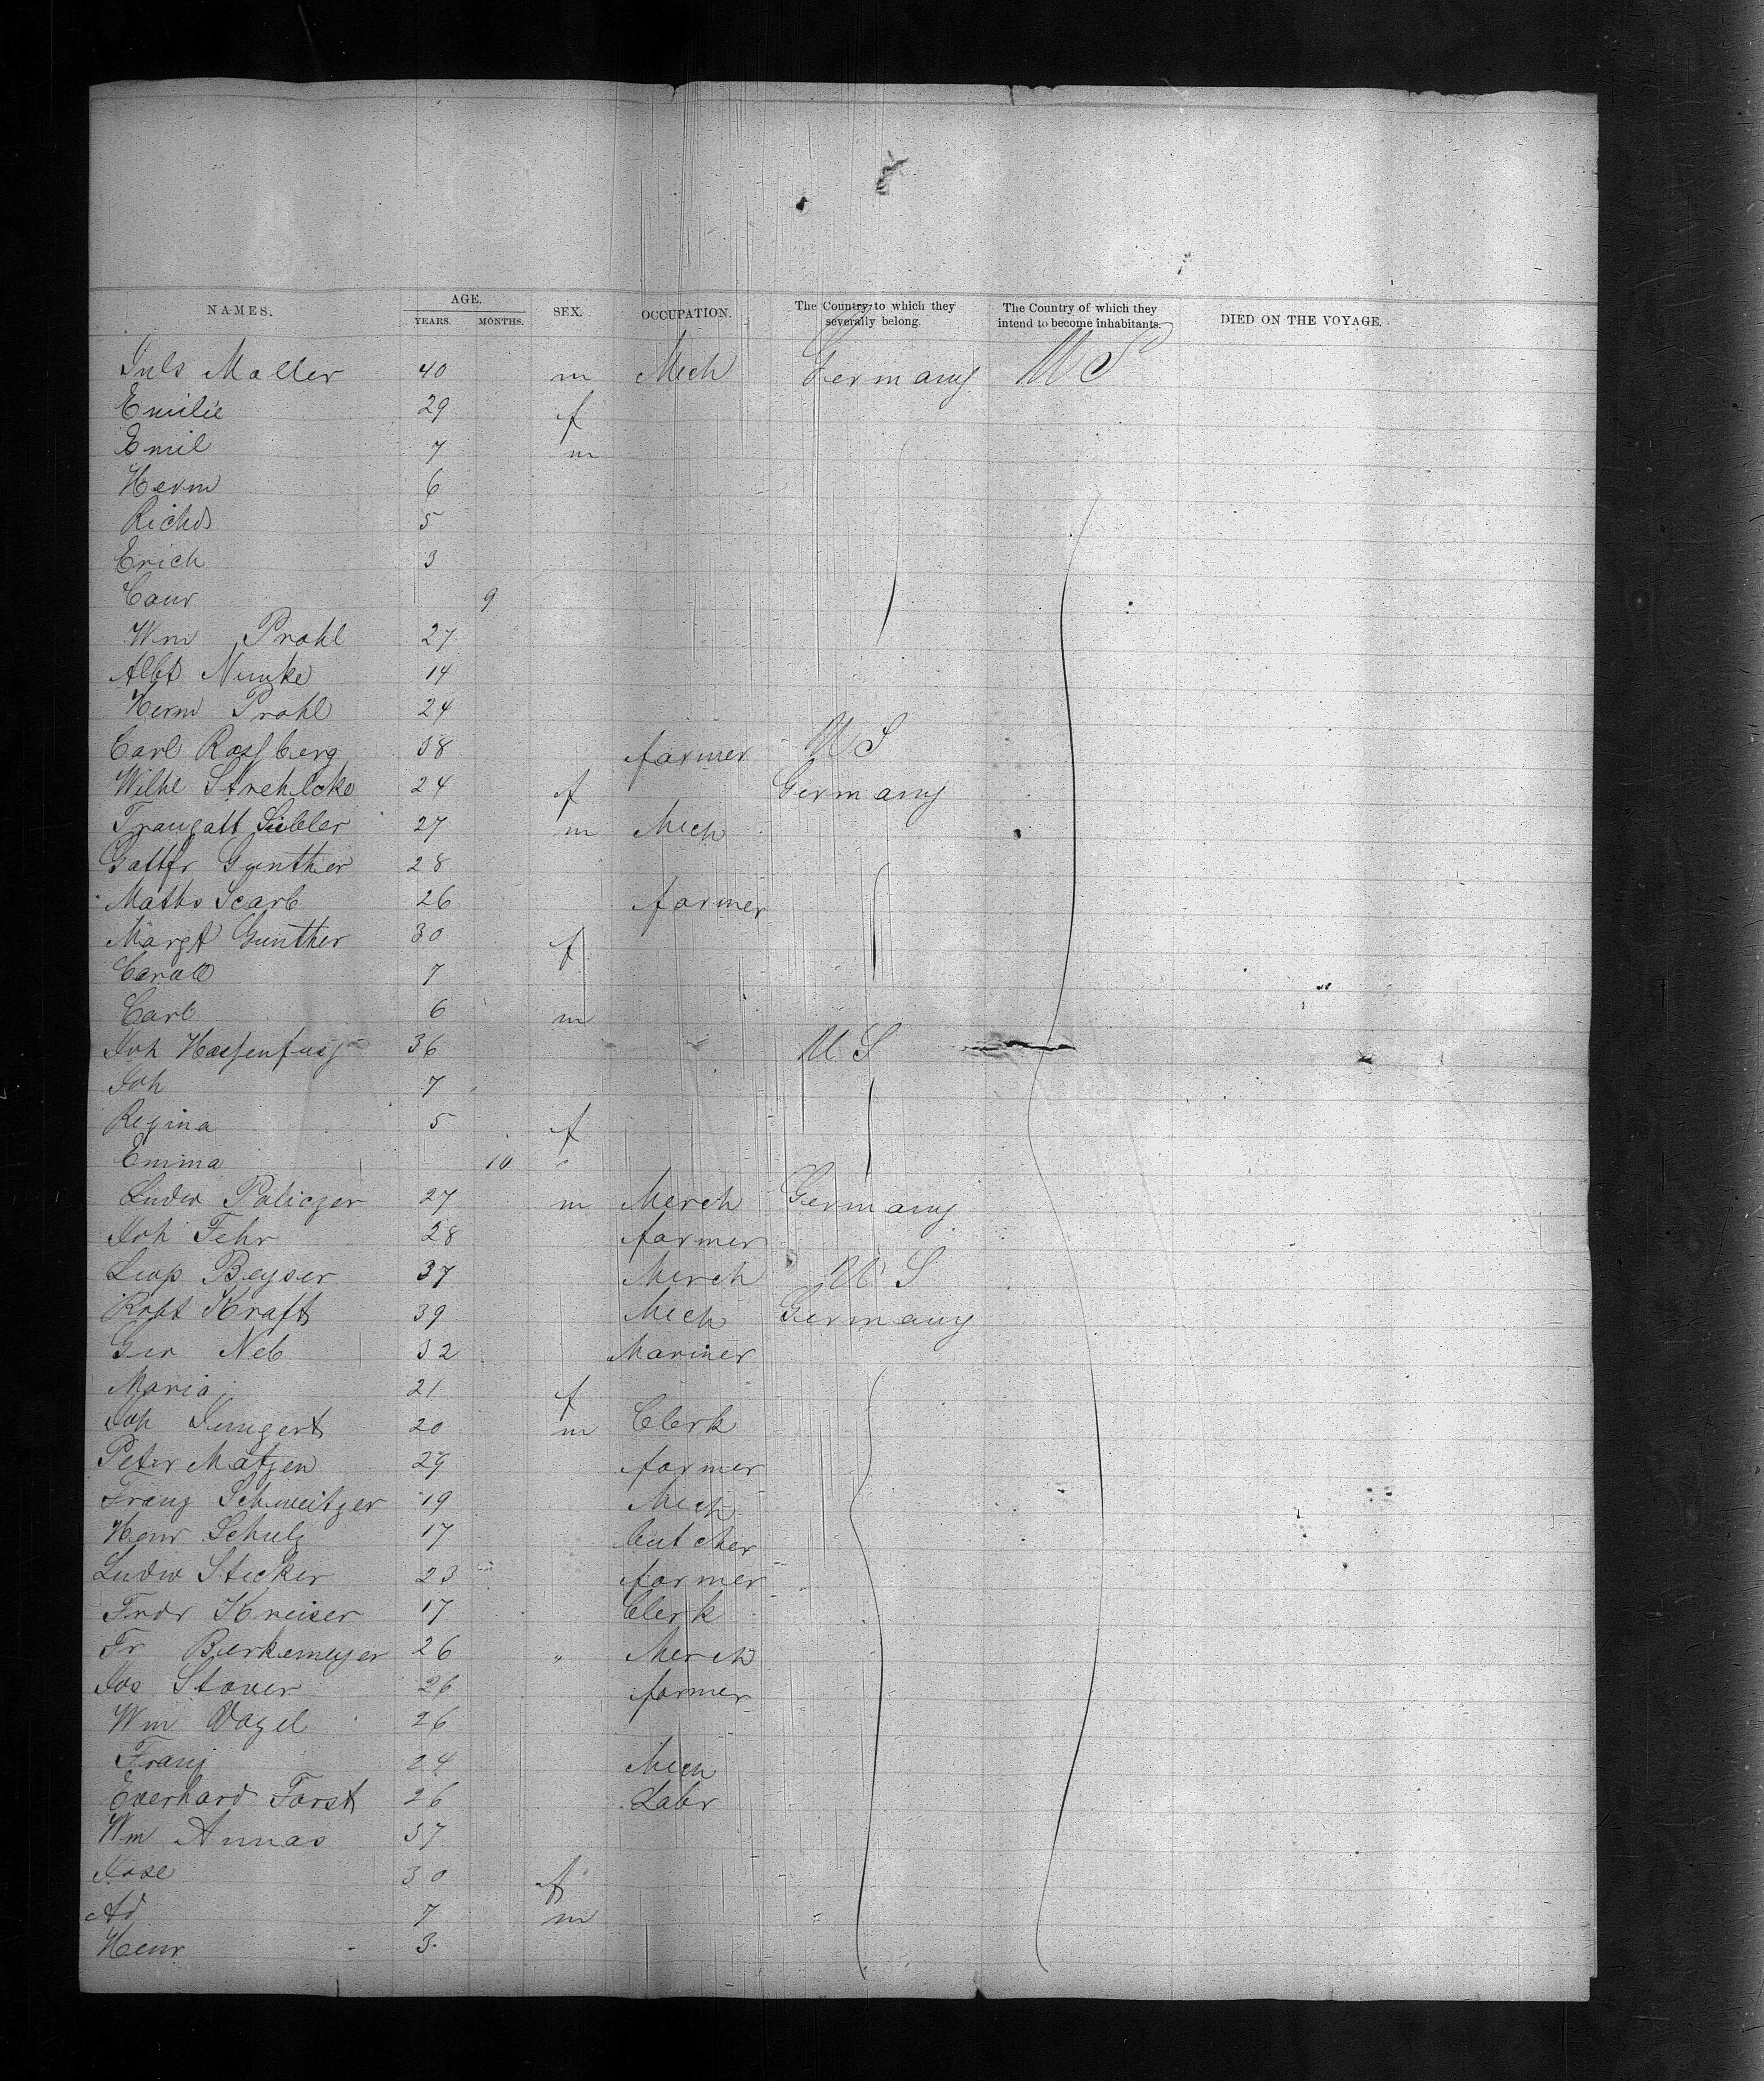 NAMES. AGE. YEARS. MONTHS. SEX. OCCUPATION. The Country to which they severally belong. The Country of which they intend to become inhabitants. DIED ON THE VOYAGE.
Juls Moller 40 m Mech Germany U S
Emilie 29 f
Emil 7 m
Herm 6
Richd 5
Erich 3
9
Wm Prohl 27
Albt 14
Herm Prohl 24
Carl Rossberg 38 farmer U S
Wilhe Strehlcke 24 f Germany
Traugott 27 m Mech
Gottfr Gunther 28
Maths Scarb 26 farmer
Margt Gunther 30 f
7
Carl 6 m
Joh Hassenfuss 36 U S
Joh 7
Regina 5 f
Emma 10 "
Ludw Policzer 27 m Merch Germany
Joh Fehr 28 farmer
Leop Beyser 37 Merch U S
Robt Kraft 39 Mech Germany
Geo Neb 32 Mariner
Maria 21 f
Joh 20 m Clerk
Peter Matzen 29 farmer
Franz Schweitzer 19 Mech
Henr Schulz 17 butcher
Ludw Stecker 23 farmer
Fredr Kreiser 17 Clerk
Fr Bierkemeyer 26 " Merch
Jos Stover 26 farmer
Wm Vogel 26
Franz 24 Mech
Everhard Forst 26 Labr
Wm Annas 37
30 f
Ad 7 m
Henr 3